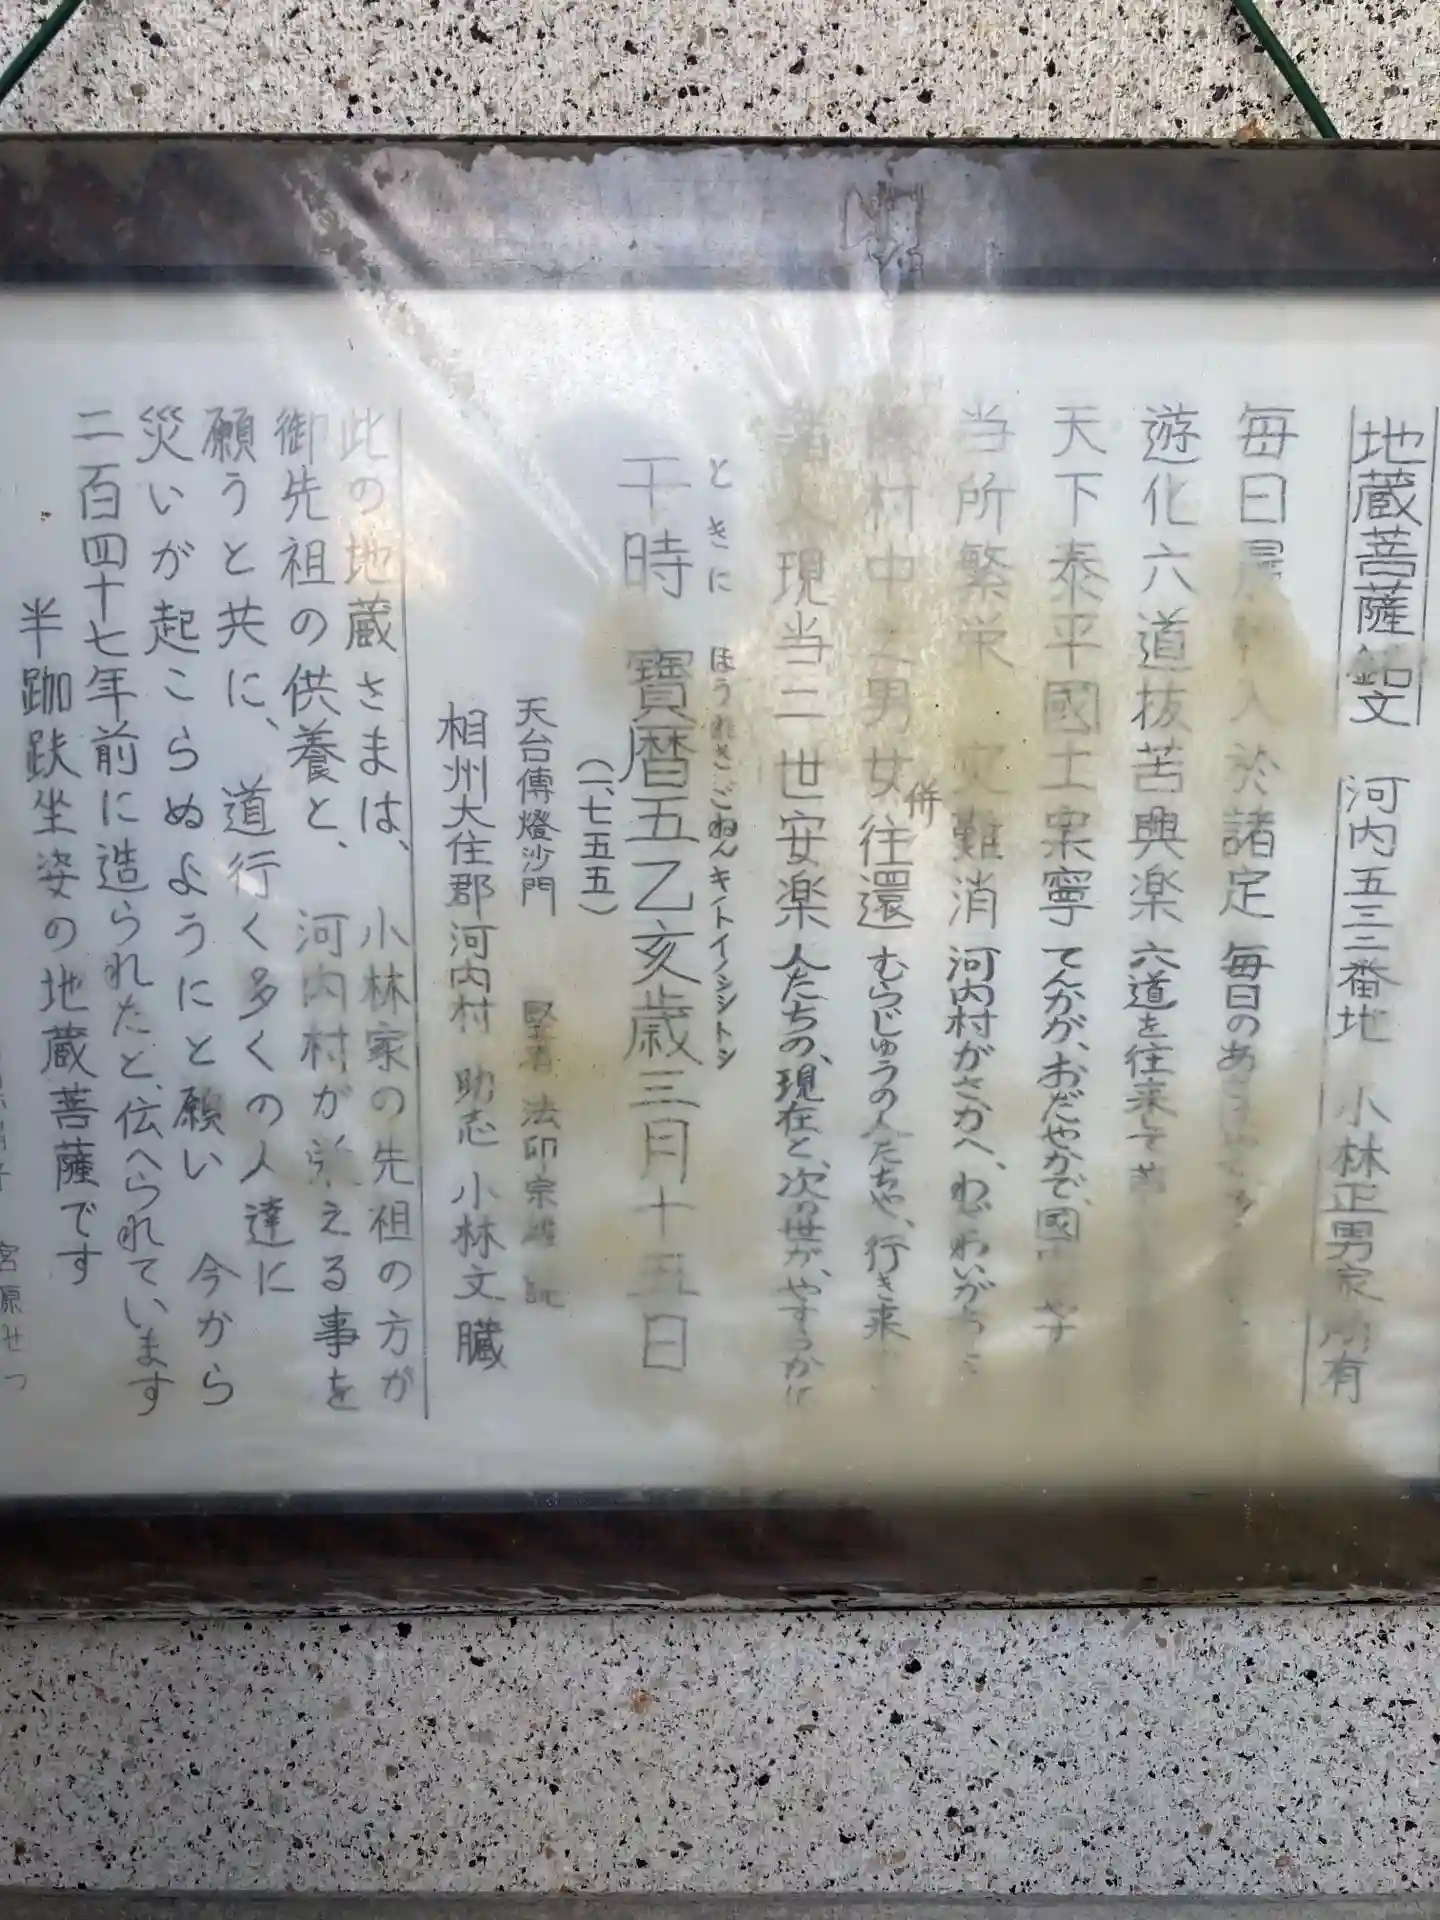 地蔵菩薩銘文 河内五三二番地 小林正男家所有
毎日晨 入於諸定 毎日のあ
遊化六道抜苦興楽 六道を往来して苦
天下泰平國土寧 てんかが、おだやかで、國
当所繁栄 災難消 河内村がさかへ、わざわいが
村中之男女併往還 むらじゅうの人たちや、行き来
諸人現当二世安楽 人たちの、現在と、次の世が、やすらかに
ときに ほうれきごねんキノトイノシシトシ
干時 寶暦五乙亥歳三月十五日
(一、七五五)
天台傳燈沙門 堅者 法印宗
相州大住郡河内村 助志 小林文臓
此の地蔵さまは、 小林家の先祖の方が
御先祖の供養と、 河内村が栄える事を
願うと共に、 道行く多くの人達に
災いが起こらぬようにと願い 今から
二百四十七年前に造られたと、伝へられています
半跏趺坐姿の地蔵菩薩です
宮原せつ